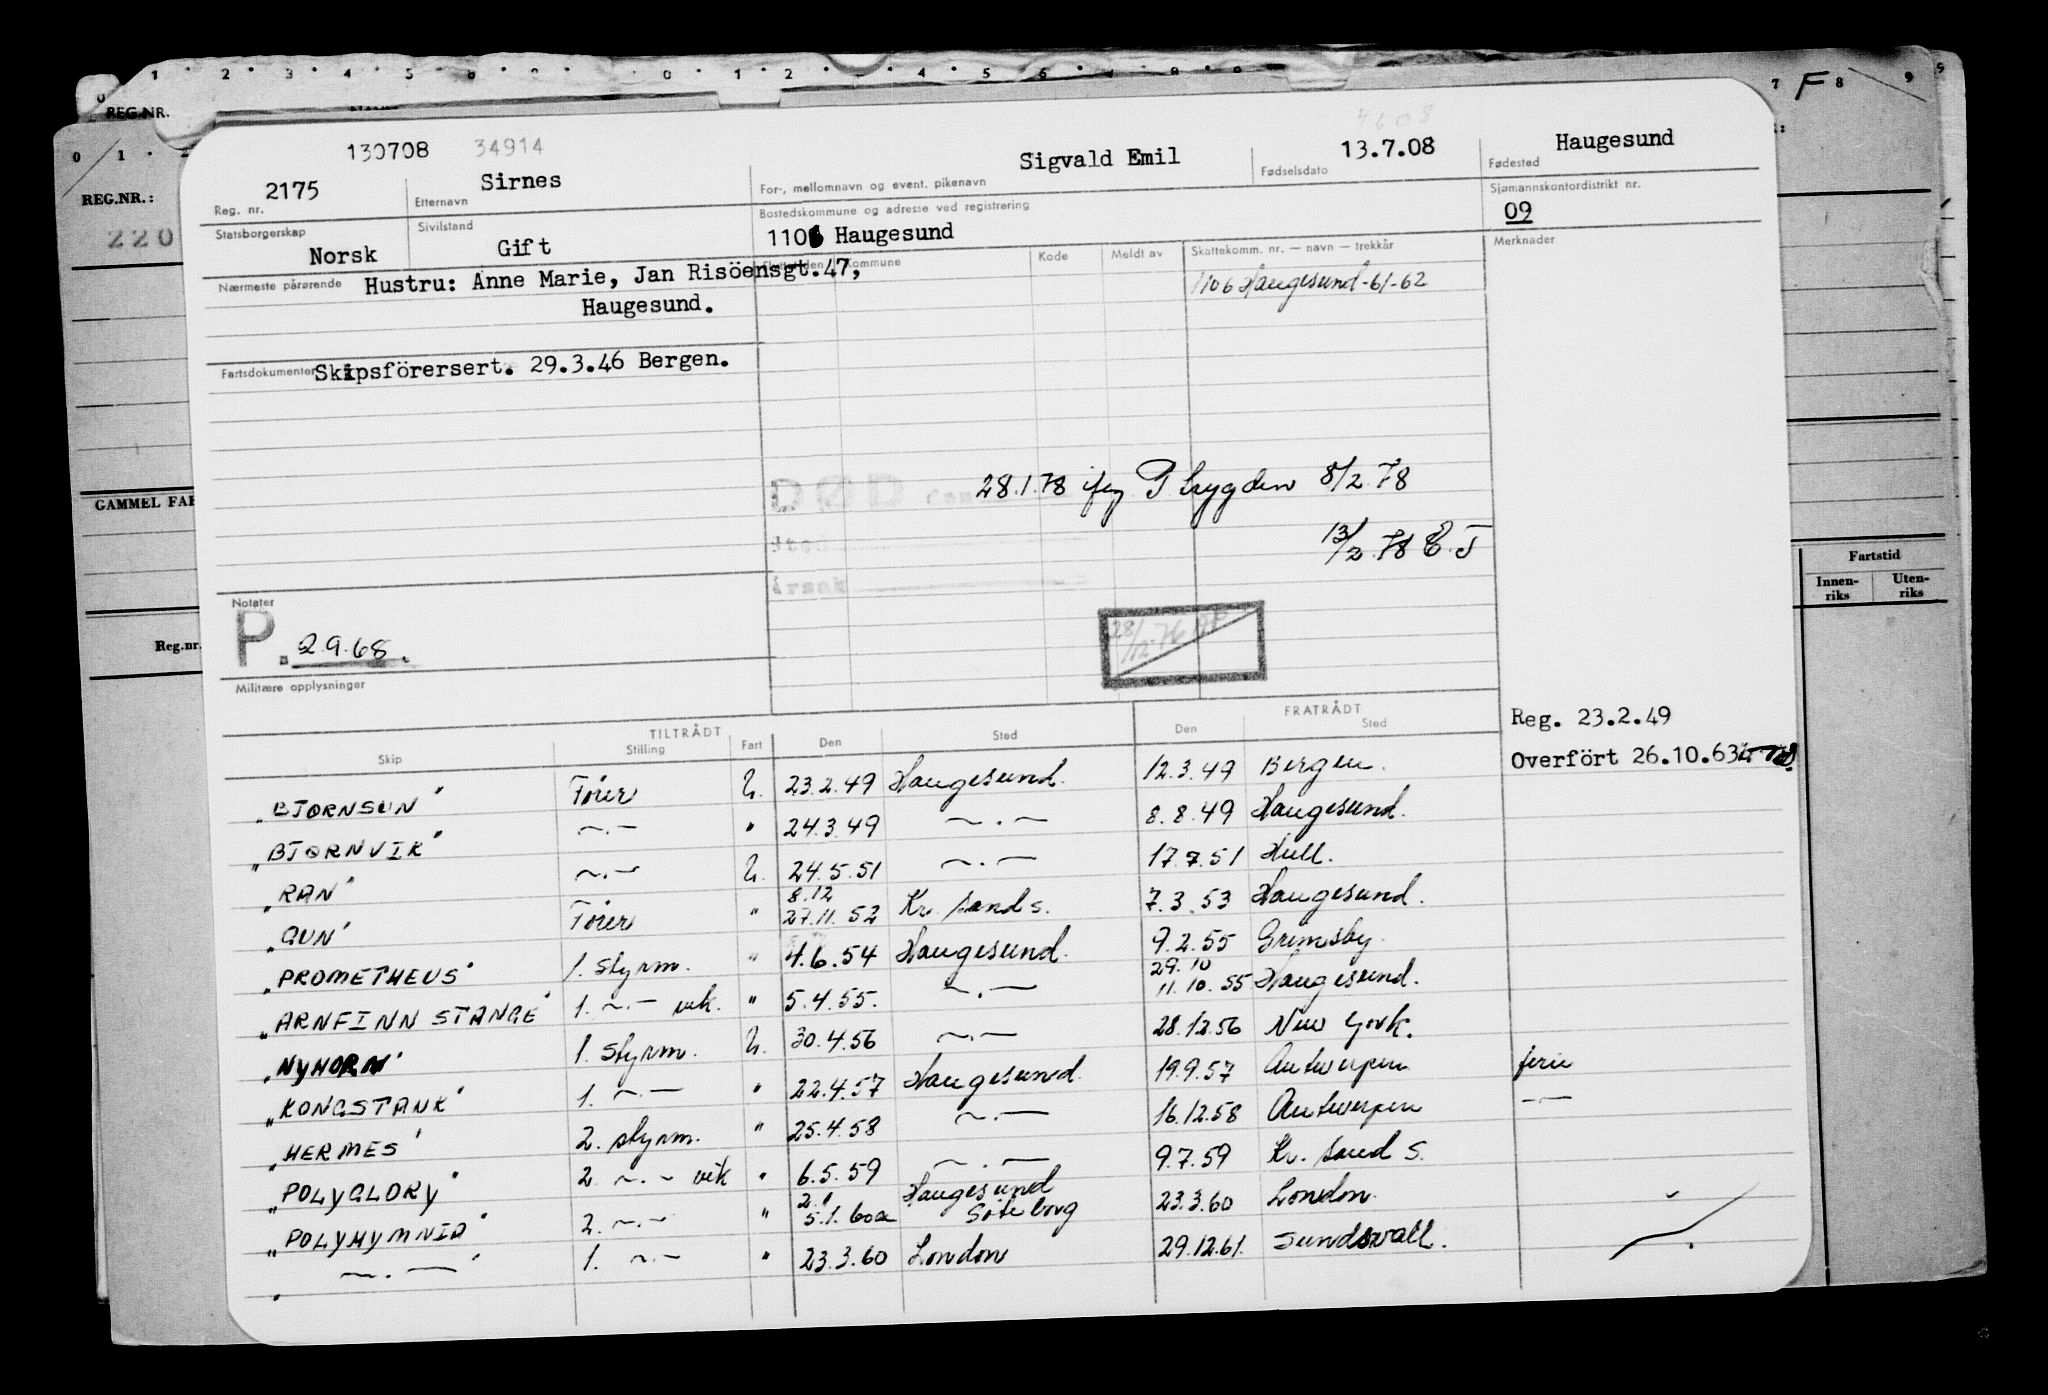 REG.NR.
F
REG.NR.:
220
GAMMEL FAR
Reg.nr.
Fartstid
Innen-riks Uten-riks
4608
130708 34914 Sigvald Emil 13.7.08 Haugesund
2175 Sirnes
Reg. nr. Etternavn For-, mellomnavn og event. pikenavn Fødselsdato Fødested
Statsborgerskap Sivilstand Bostedskommune og adresse ved registrering Sjømannskontordistrikt nr.
Norsk Gift 1106 Haugesund 09
Nærmeste pårørende Hustru: Anne Marie, Jan Risöensgt.47, Kommune Kode Meldt av Skattekomm. nr. — navn — trekkår Merknader
Haugesund. 1106 Haugesund-61-62
Fartsdokumenter Skipsförersert. 29.3.46 Bergen.
DØD den 28.1.78 iføg P trygden 8/2.78
13/2.78 E.J
årsak
Notater
P. 2.9.68.
28/12.76
Militære opplysninger
TILTRÅDT FRATRÅDT
Skip Stilling Fart Den Sted Den Sted
Reg. 23.2.49
Overfört 26.10.63
"BJØRNSUN" Fører U. 23.2.49 Haugesund. 12.3.49 Bergen.
"BJØRNVIK" ~.— " 24.3.49 ~.— 8.8.49 Haugesund.
"RAN" ~.— U. 24.5.51 ~.— 17.7.51 Hull.
8.12
"GUN" Fører " 27.11.52 Kr. sand s. 7.3.53 Haugesund.
"PROMETHEUS" 1. styrm. " 4.6.54 Haugesund. 9.2.55 Grimsby
29.10
"ARNFINN STANGE" 1. ~.— vik. " 5.4.55. ~.— 11.10.55 Haugesund.
"NYHORN" 1. styrm. U. 30.4.56 ~.— 28.12.56 New York.
"KONGSTANK" 1. ~.— " 22.4.57 Haugesund 19.9.57 Antwerpen ferie
"HERMES" 2. styrm. " 25.4.58 ~.— 16.12.58 Antwerpen —.—
"POLYGLORY" 2. ~.— vik " 6.5.59 ~.— 9.7.59 Kr. sand s.
2." Haugesund
"POLYHYMNIA" 2. ~.— " 5.1.60 Göteborg 23.3.60 London.
~.— " 1. ~.— " 23.3.60 London 29.12.61. Sundsvall.